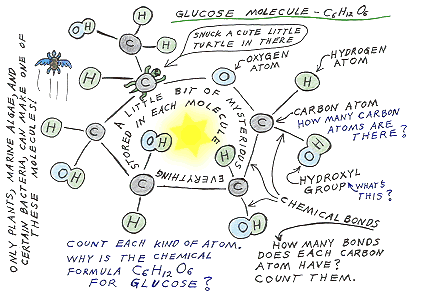 GLUCOSE MOLECULE - C6H12O6
SNUCK A CUTE LITTLE
TURTLE IN THERE
OXYGEN
ATOM
HYDROGEN
ATOM
CARBON ATOM
HOW MANY CARBON
ATOMS ARE
THERE?
HYDROXYL
GROUP
WHAT'S
THIS?
CHEMICAL BONDS
HOW MANY BONDS
DOES EACH CARBON
ATOM HAVE?
COUNT THEM.
COUNT EACH KIND OF ATOM.
WHY IS THE CHEMICAL
FORMULA C6H12O6
FOR GLUCOSE?
ONLY PLANTS, MARINE ALGAE, AND
CERTAIN BACTERIA, CAN MAKE ONE OF
THESE MOLECULES!
A LITTLE BIT OF MYSTERIOUS
EVERYTHING
STORED IN EACH MOLECULE
H
C
H
OH
H
C
O
H
OH
C
C
H
OH
H
C
H
C
H
OH
OH